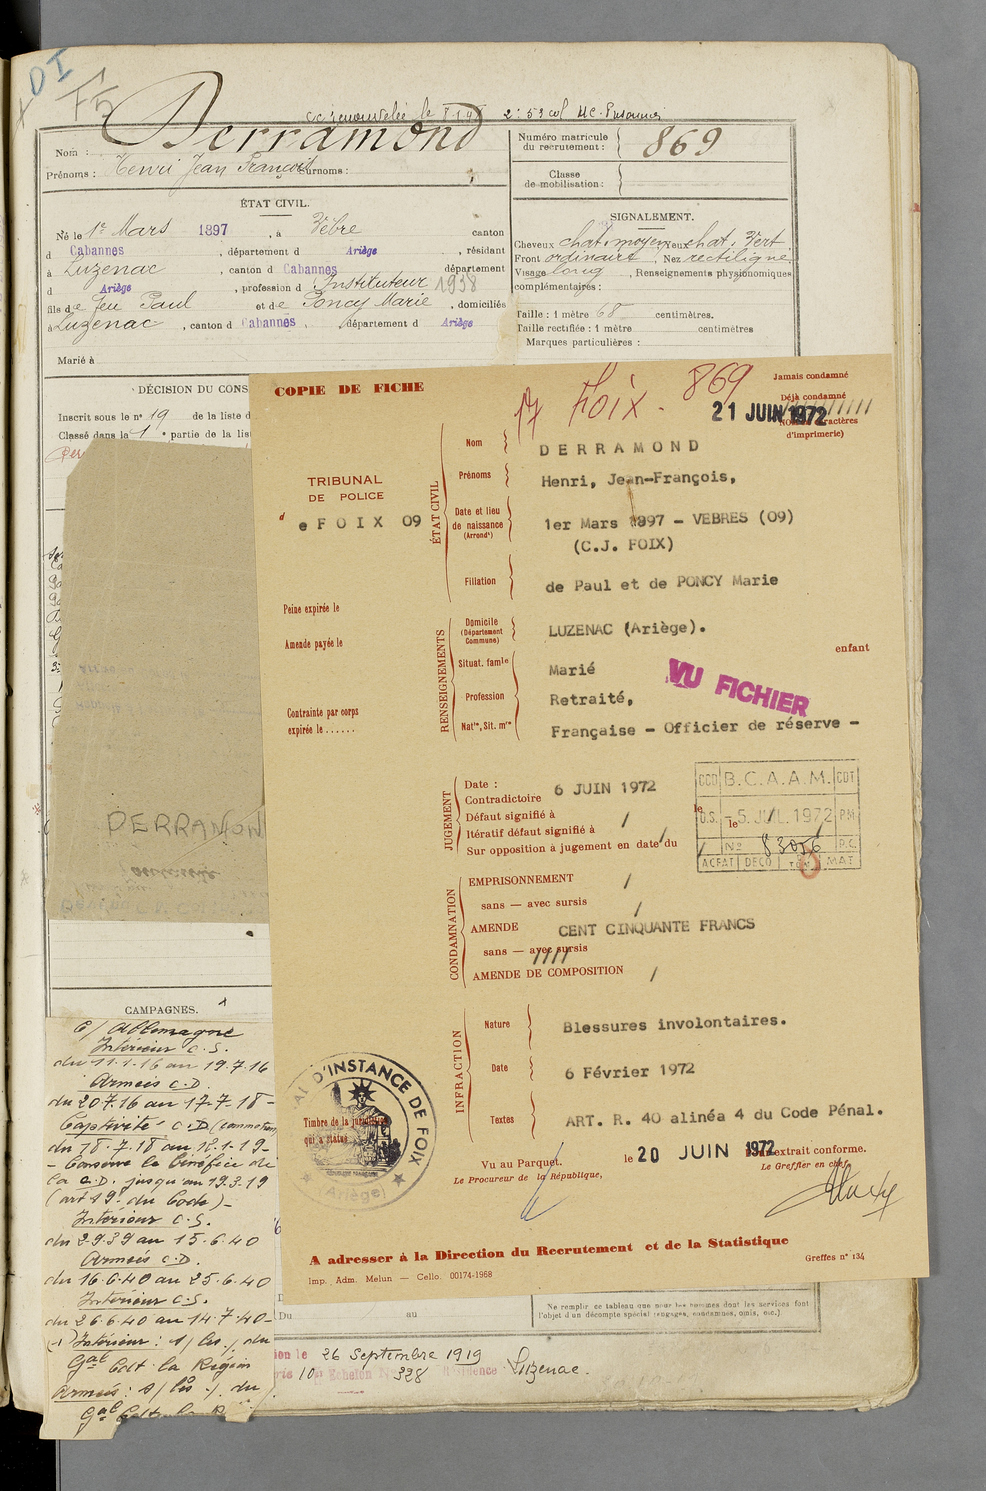 DI
Derramond
Nom :
Prénoms : Henri Jean François Surnoms :
Numéro matricule du recrutement : 869
Classe de mobilisation :
ÉTAT CIVIL.
Né le 1er Mars 1897, à Vèbre canton
d Cabannes, département d Ariège, résidant
à Luzenac, canton d Cabannes département
d Ariège, profession d Instituteur 1938
fils de feu Paul et de Poncy Marie, domiciliés
à Luzenac, canton d Cabannes, département d Ariège
Marié à
SIGNALEMENT.
Cheveux chat. moyen yeux chat. Vert
Front ordinaire Nez rectiligne
Visage long, Renseignements physionomiques
complémentaires :
Taille : 1 mètre 68 centimètres.
Taille rectifiée : 1 mètre centimètres
Marques particulières :
DÉCISION DU CONS
Inscrit sous le n° 19 de la liste d
Classé dans la 1e partie de la lis
COPIE DE FICHE
Foix - 869
Jamais condamné
Déjà condamné
21 JUIN 1972
d'imprimerie)
TRIBUNAL
DE POLICE
d e FOIX 09
Peine expirée le
Amende payée le
Contrainte par corps
expirée le ......
ÉTAT CIVIL
Nom DERRAMOND
Prénoms Henri, Jean-François,
Date et lieu de naissance (Arrondt) 1er Mars 1897 - VEBRES (09)
(C.J. FOIX)
Filiation de Paul et de PONCY Marie
RENSEIGNEMENTS
Domicile (Département Commune) LUZENAC (Ariège).
enfant
Situat. famle Marié
Profession Retraité,
VU FICHIER
Natté, Sit. mre Française - Officier de réserve -
JUGEMENT
Date : 6 JUIN 1972
Contradictoire
Défaut signifié à
le
Itératif défaut signifié à
Sur opposition à jugement en date du
CCD B.C.A.A.M. CDT
O.S. le -5. JUIL. 1972 P.M
N° 83056 P.C.
ACFAT DECO MAT
CONDAMNATION
EMPRISONNEMENT
sans — avec sursis
AMENDE CENT CINQUANTE FRANCS
sans — avec sursis
AMENDE DE COMPOSITION
INFRACTION
Nature Blessures involontaires.
Date 6 Février 1972
Textes ART. R. 40 alinéa 4 du Code Pénal.
D'INSTANCE DE FOIX
(Ariège)
Timbre de la juridiction
qui a statué
Vu au Parquet.
Le Procureur de la République,
le 20 JUIN 1972
extrait conforme.
Le Greffier en chef,
A adresser à la Direction du Recrutement et de la Statistique
Imp. Adm. Melun — Cello. 00174-1968
Greffes n° 134
DERRAMON
CAMPAGNES.
C/ Allemagne
Intérieur C.S.
du 11.1.16 au 19.7.16
Armées C.D.
du 20.7.16 au 17-7-18-
Captivité C.D.
du 18.7.18 au 12.1.19-
- Conserve le bénéfice de
la C.D. jusqu'au 19.3.19
(art 19 du Code)-
Intérieur C.S.
du 2.9.39 au 15.6.40
Armées C.D.
du 16.6.40 au 25.6.40
Intérieur C.S.
du 26.6.40 au 14.7.40-
Intérieur : s/ du
Gal Cdt la Région
Armées : s/ du
Du au
Ne remplir ce tableau que pour les hommes dont les services font
l'objet d'un décompte spécial (engagés, condamnés, omis, etc.)
le 26 Septembre 1919
Echelon N° 328 Résidence Luzenac.